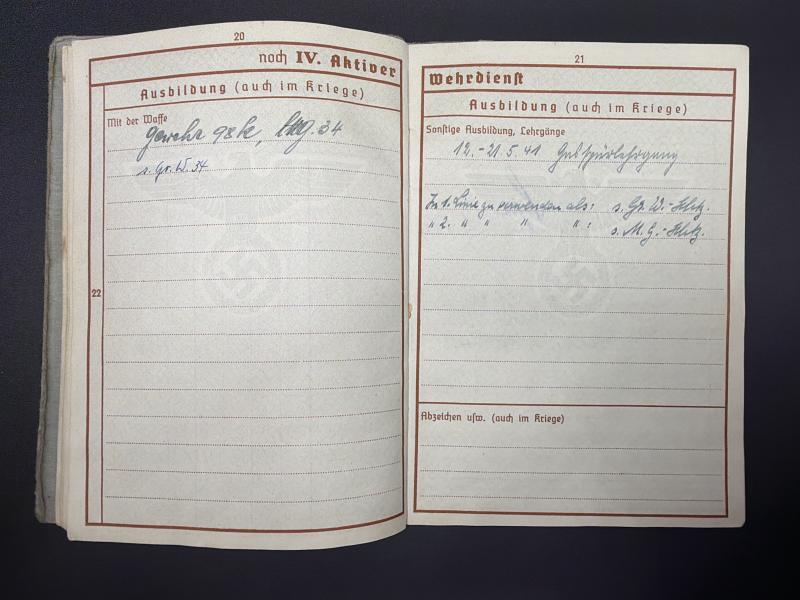 20
noch IV. Aktiver
Ausbildung (auch im Kriege)
Mit der Waffe
Gewehr 98k, lMG. 34
s. Gr. W. 34
22
21
Wehrdienst
Ausbildung (auch im Kriege)
Sonstige Ausbildung, Lehrgänge
12.-21.5.41 Gasspürlehrgang
In 1. Linie zu verwenden als: s. Gr. W.-Schtz.
" 2. " " " " : s. M. G.-Schtz.
Abzeichen usw. (auch im Kriege)